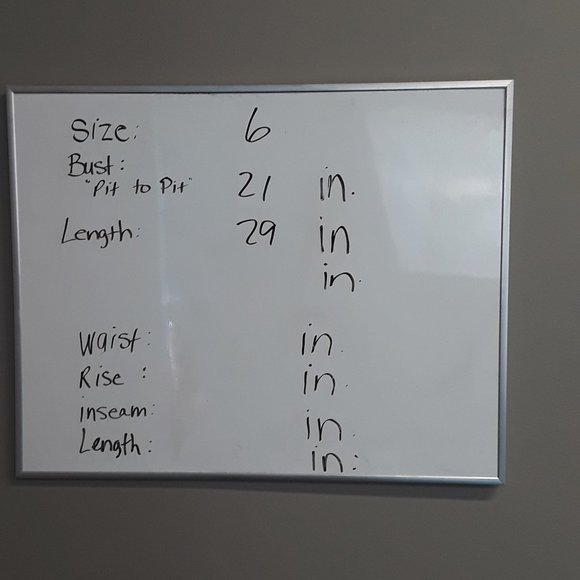 Size: 6
Bust:
"Pit to Pit" 21 in.
Length: 29 in
in.
Waist: in.
Rise: in.
inseam: in.
Length: in: